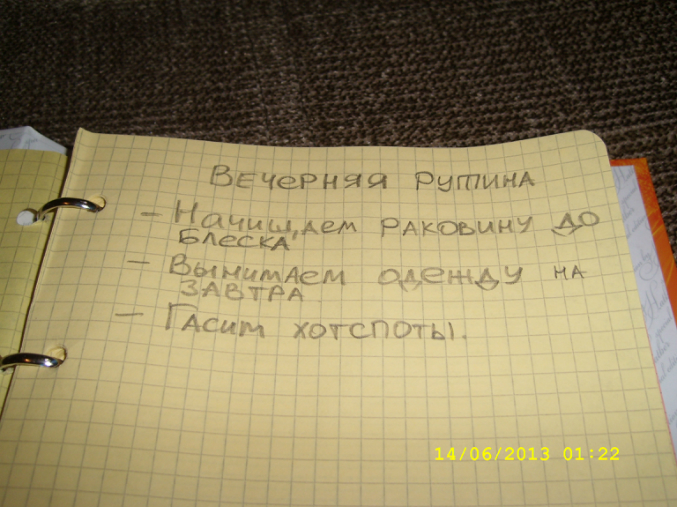 Вечерняя рутина
- Начищаем раковину до
блеска
- Вынимаем одежду на
завтра
- Гасим хотспоты.
14/06/2013 01:22